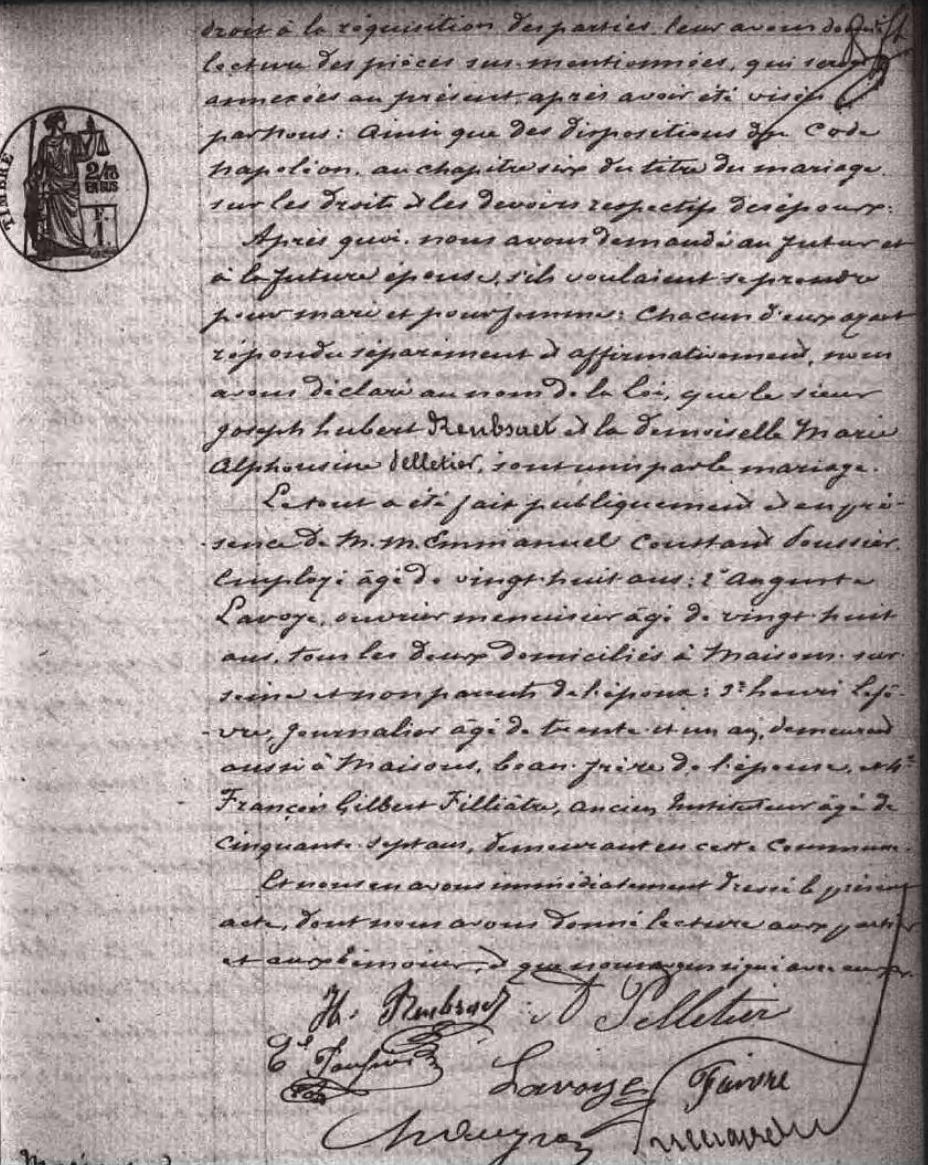 droit à la réquisition des parties. leur avons donné
lecture des pièces sus-mentionnées, qui seront
annexées au présent, après avoir été visées
par nous: Ainsi que des dispositions du Code
napoléon. au chapitre six du titre du mariage.
sur les droits et les devoirs respectifs des époux:
TIMBRE
2/10
EN SUS
Après quoi. nous avons demandé au futur et
à la future épouse, s'ils voulaient se prendre
pour mari et pour femme: Chacun d'eux ayant
répondu séparément et affirmativement, nous
avons déclaré au nom de la loi, que le sieur
Joseph hubert Reubsaet et la demoiselle Marie
Alphonsine Pelletier, sont unis par le mariage.
Le tout a été fait publiquement et en pré-
-sence de M. M. Emmanuel Constant
Employé âgé de vingt-huit ans: 2° Auguste
Lavoye, ouvrier menuisier âgé de vingt-huit
ans, tous les deux domiciliés à Maisons-sur-
seine et non parents de l'époux: 3° henri Lefè-
-vre, Journalier âgé de trente et un an, demeurant
aussi à Maisons, beau-frère de l'épouse, et 4°
François Gilbert Filliâtre, ancien Instituteur âgé de
cinquante-sept ans, demeurant en cette Commune.
Et nous en avons immédiatement dressé le présent
acte, dont nous avons donné lecture aux parties
et aux témoins, et que nous avons signé avec eux
H. Reubsaet A Pelletier
Lavoye